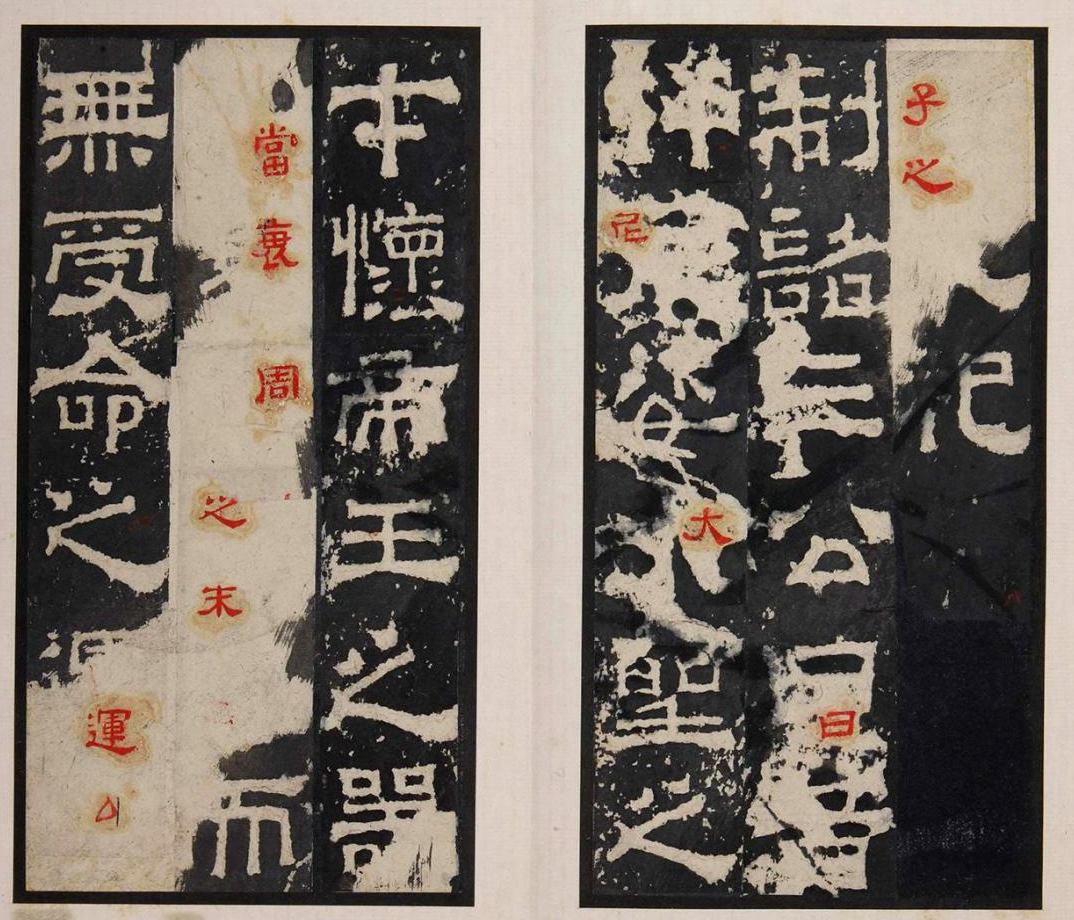 子之祀
制詔三公曰昔
仲尼姿大聖之
才懷帝王之器
當衰周之末而
無受命之運